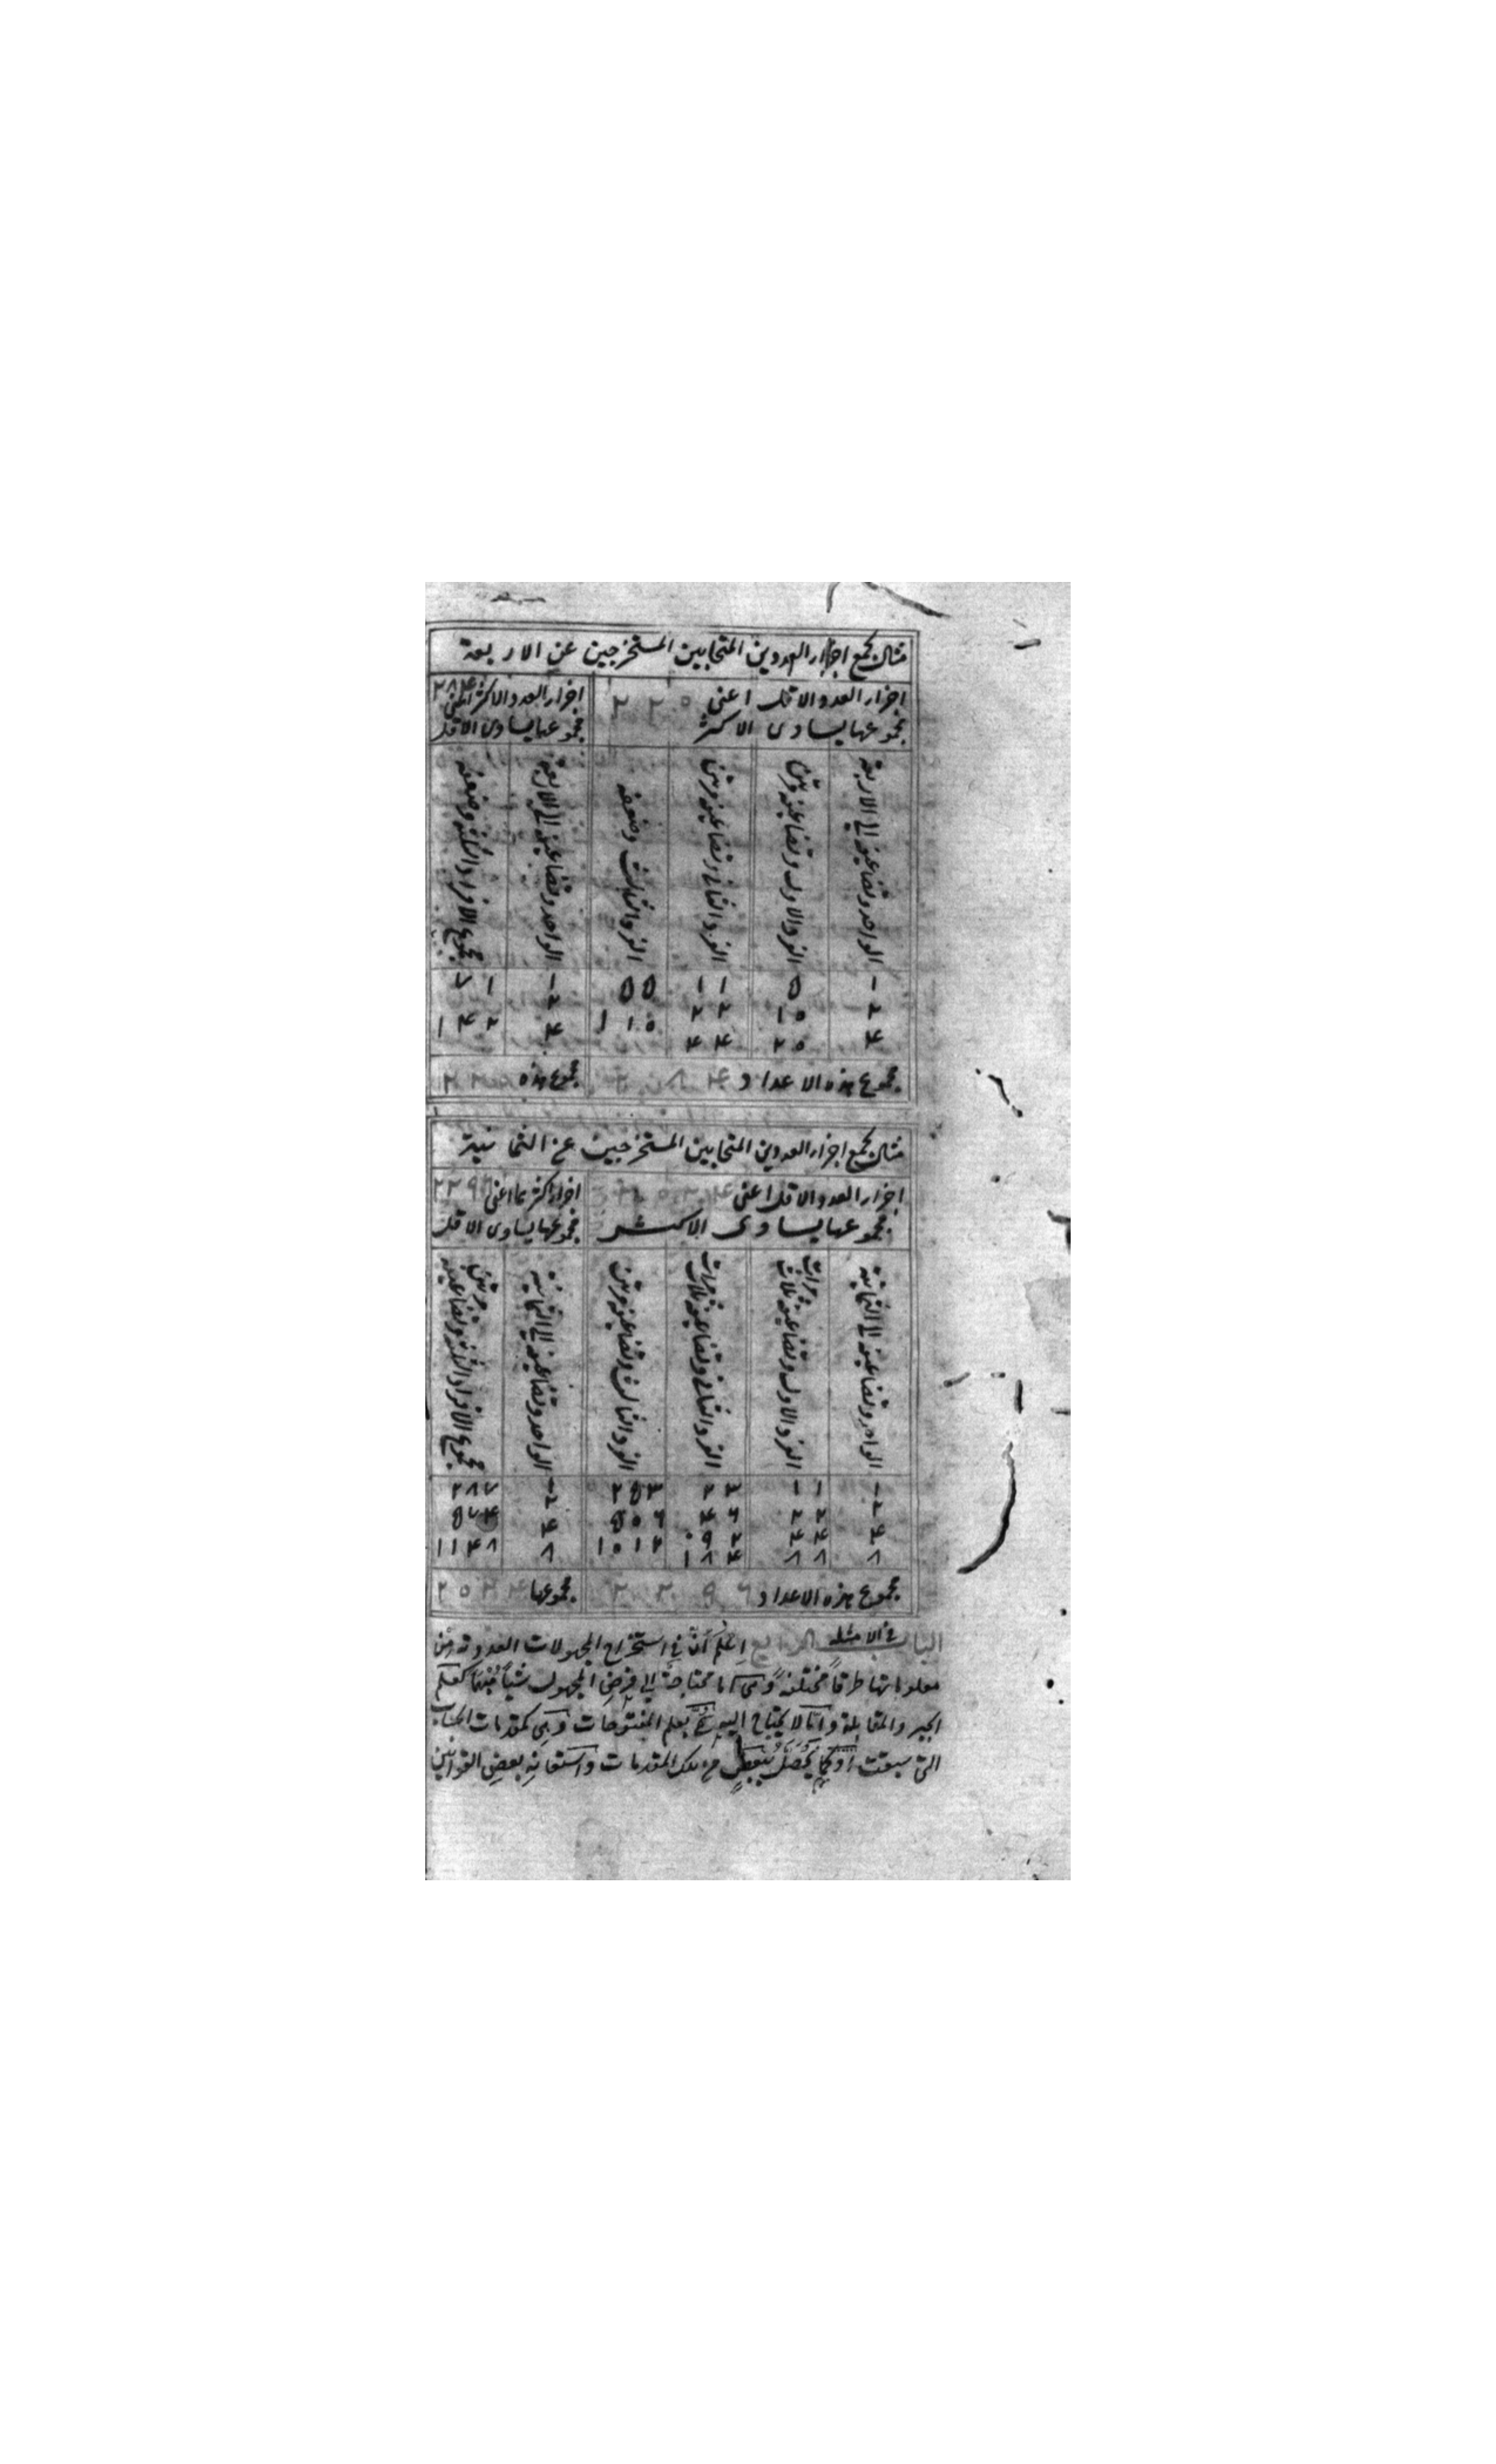 مثال لجمع اجزاء العددين المتحابين المستخرجين عن الاربعة
اجزاء العدد الاقل اعنى ٢٢٠
مجموعها يساوى الاكثر
اجزاء العدد الاكثر اعنى ٢٨۴
مجموعها يساوى الاقل
الواحد وتضاعيفه الى الاربعة
الفرد الاول وتضاعيفه مرتين
الفرد الثانى وتضاعيفه مرتين
الفرد الثالث وضعفه
الواحد وتضاعيفه الى الاربعة
مجموع الافراد الثلثة وضعفه
١ ٥ ١١ ٥٥ ١ ٧١
٢ ١٠ ٢٢ ١١٠ ٢ ١۴٢
۴ ٢٠ ۴۴ ۴
مجموع هذه الاعداد ٢٨۴ مجموع هذه ٢٢٠
مثال لجمع اجزاء العددين المتحابين المستخرجين عن الثمانية
اجزاء العدد الاقل اعنى ٢٠٢۴
مجموعها يساوى الاكثر
اجزاء اكثرهما اعنى ٢٢٩٦
مجموعها يساوى الاقل
الواحد وتضاعيفه الى الثمانية
الفرد الاول وتضاعيفه ثلاث مرات
الفرد الثانى وتضاعيفه ثلاث مرات
الفرد الثالث وتضاعيفه مرتين
الواحد وتضاعيفه الى الثمانية
مجموع الافراد الثلثة وتضاعيفه مرتين
١ ١١ ٢٣ ٢٥٣ ١ ٢٨٧
٢ ٢٢ ۴٦ ٥٠٦ ٢ ٥٧۴
۴ ۴۴ ٠٩٢ ١٠١٢ ۴ ١١۴٨
٨ ٨٨ ١٨۴ ٨
مجموع هذه الاعداد ٢٢٩٦ مجموعها ٢٠٢۴
الباب الرابع فى الامثلة اعلم ان فى استخراج المجهولات العددية من
معلوماتها طرقا مختلفة وهى اما محتاجة الى فرض المجهول شيئا كعلم
الجبر والمقابلة واما لا يحتاج اليه بعلم المفتوحات وهى كمقدمات الحساب
التى سبقت تلك المقدمات واستعانة بعض القوانين